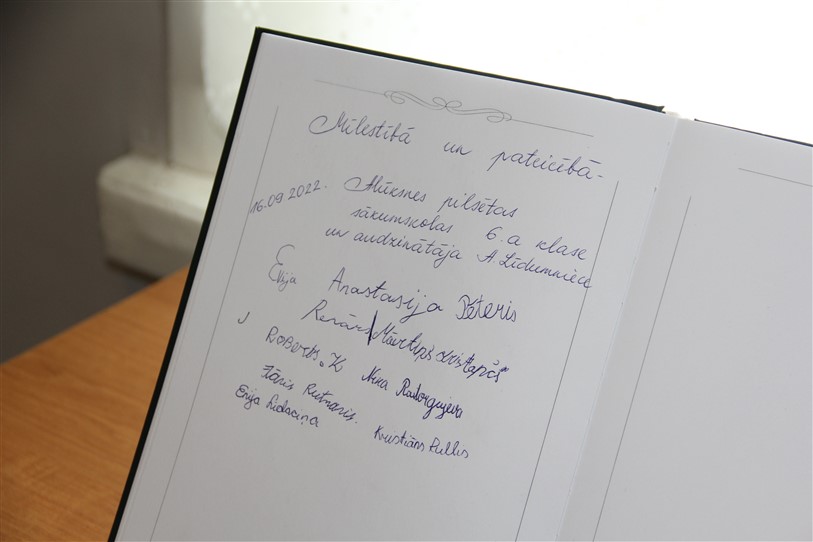 Mīlestībā un pateicībā-
16.09.2022. Alūksnes pilsētas
sākumskolas 6.a klase
un audzinātāja A. Līdumniece
Evija Anastasija Pēteris
Renārs Mārtiņš Kristaps
Roberts. K Nika
Rutnaris.
Kristiāns Pullis
Enija